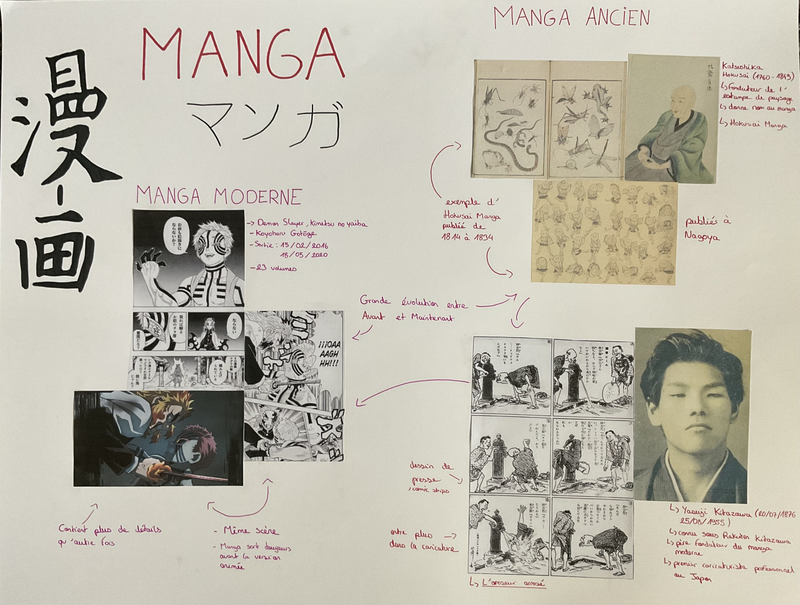 漫画
MANGA
マンガ
MANGA MODERNE
-> Demon Slayer, Kimetsu no yaiba
- Koyoharu Gotōge
- Sortie : 15/02/2016
18/05/2020
- 23 volumes
¡¡¡OAA
AAGH
HH!!!
Contient plus de détails
qu'autre fois
- Même scène
- Manga sort toujours
avant la version
animée
Grande évolution entre
Avant et Maintenant
MANGA ANCIEN
Katsushika
Hokusai (1760-1849)
↳ Fondateur de l'
estampe de paysage
↳ donne nom au manga
↳ Hokusai Manga
exemple d'
Hokusai Manga
publié de
1814 à 1834
publiés à
Nagoya
dessin de
presse
comic strips
entre plus
dans la caricature
↳ L'arroseur arrosé
↳ Yasuji Kitazawa (20/07/1876
25/08/1955)
↳ connu sous Rakuten Kitazawa
↳ père fondateur du manga
moderne
↳ premier caricaturiste professionnel
au Japon